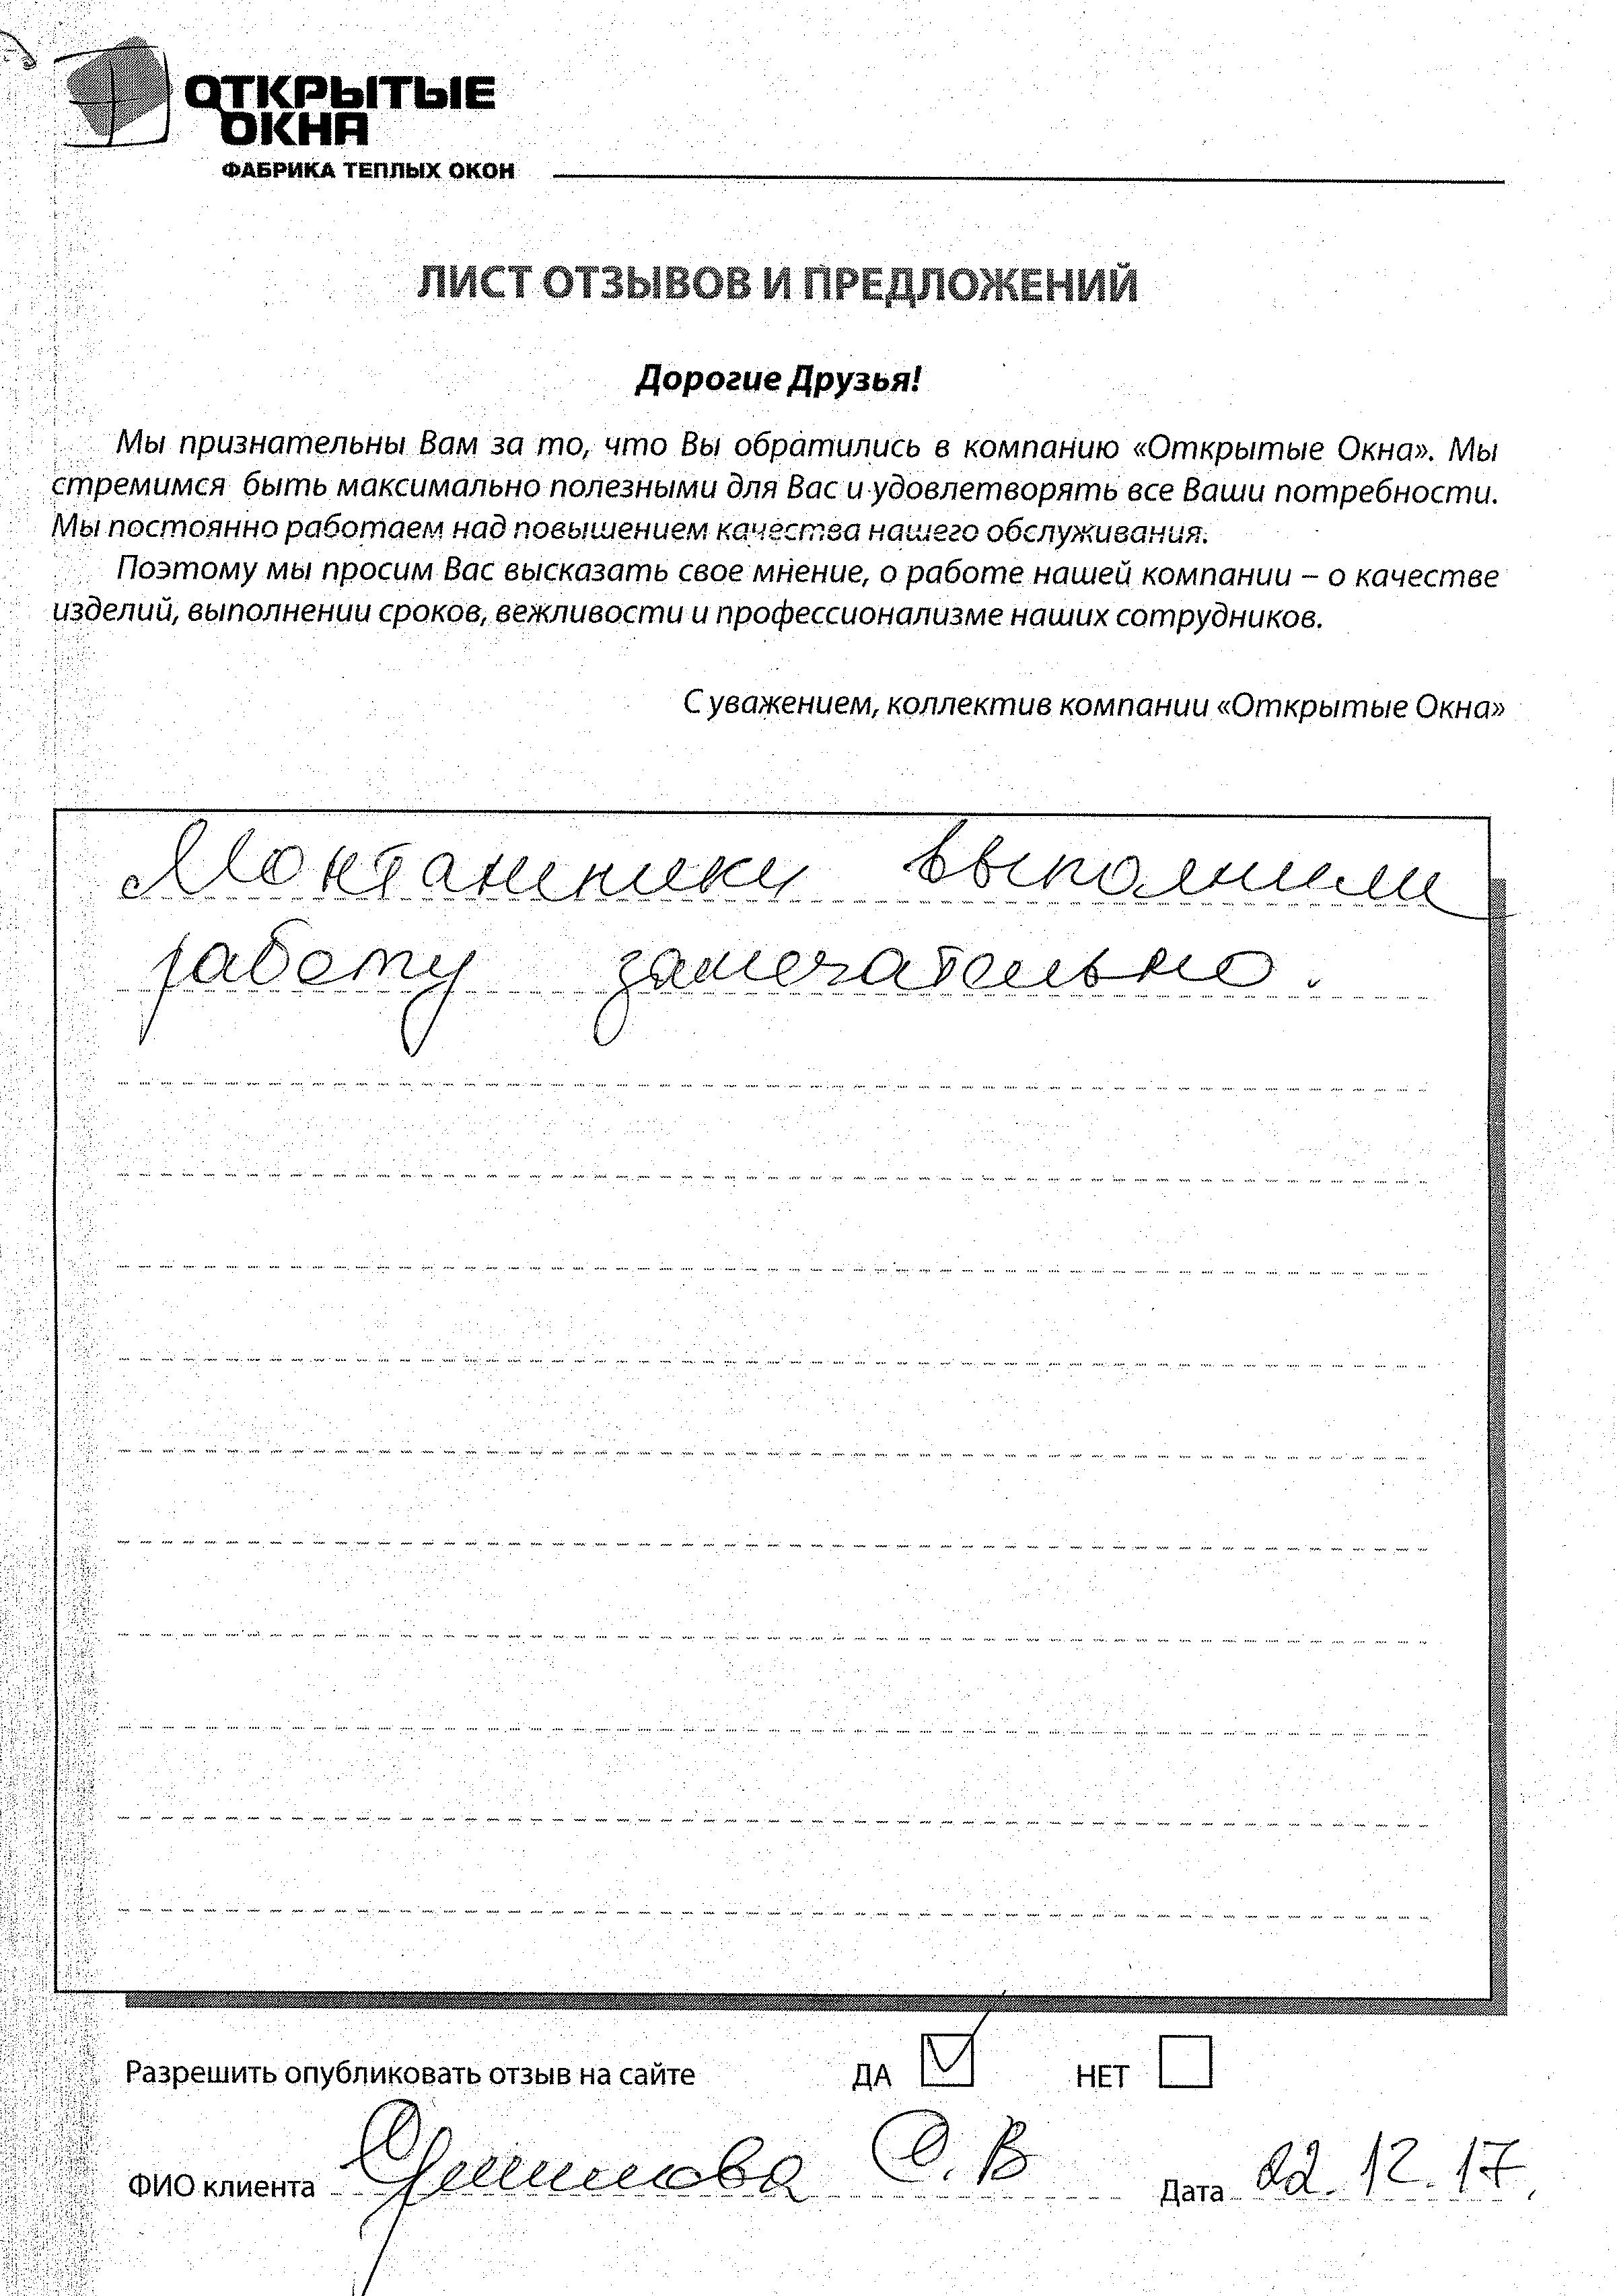 ОТКРЫТЫЕ
ОКНА
ФАБРИКА ТЕПЛЫХ ОКОН
ЛИСТ ОТЗЫВОВ И ПРЕДЛОЖЕНИЙ
Дорогие Друзья!
Мы признательны Вам за то, что Вы обратились в компанию «Открытые Окна». Мы
стремимся быть максимально полезными для Вас и удовлетворять все Ваши потребности.
Мы постоянно работаем над повышением качества нашего обслуживания.
Поэтому мы просим Вас высказать свое мнение, о работе нашей компании – о качестве
изделий, выполнении сроков, вежливости и профессионализме наших сотрудников.
С уважением, коллектив компании «Открытые Окна»
Монтажники выполнили
работу замечательно.
Разрешить опубликовать отзыв на сайте ДА НЕТ
ФИО клиента О.В Дата 22.12.17